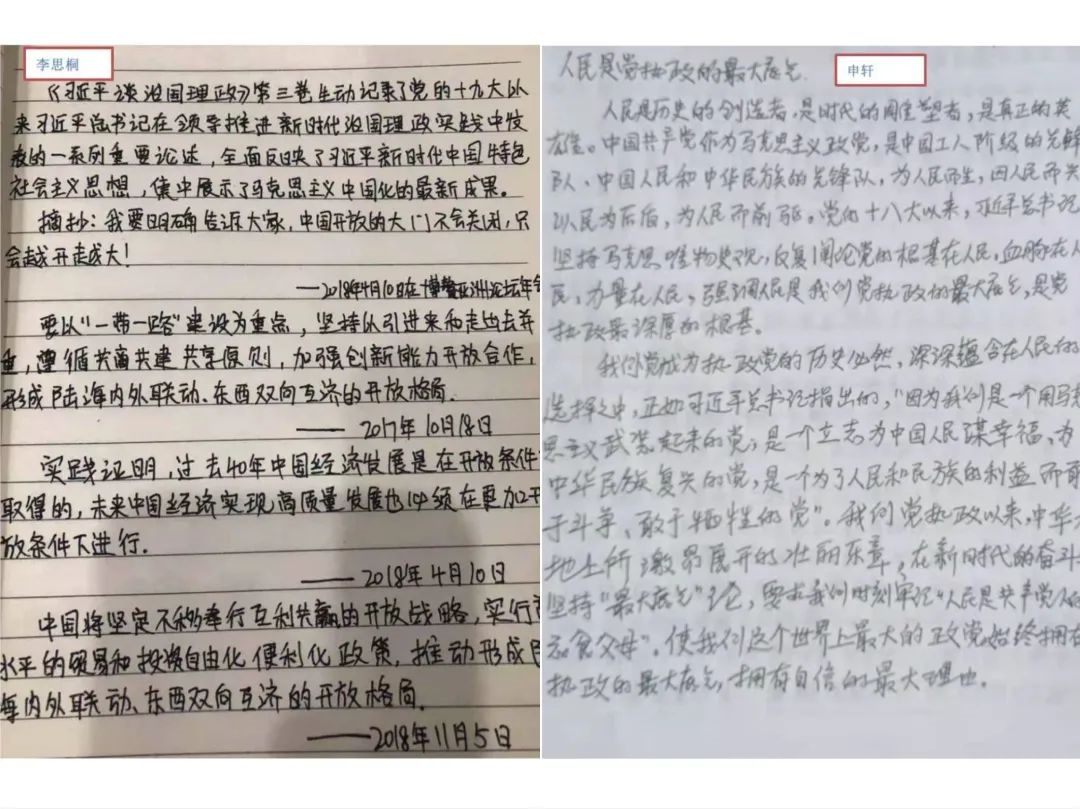 李思桐
《习近平谈治国理政》第三卷生动记录了党的十九大以
来习近平总书记在领导推进新时代治国理政实践中发
表的一系列重要论述，全面反映了习近平新时代中国特色
社会主义思想，集中展示了马克思主义中国化的最新成果。
摘抄：我要明确告诉大家，中国开放的大门不会关闭，只
会越开越大！
——2018年4月10日在博鳌亚洲论坛年会
要以“一带一路”建设为重点，坚持从引进来和走出去并
重，遵循共商共建共享原则，加强创新能力开放合作，
形成陆海内外联动、东西双向互济的开放格局。
—— 2017年10月18日
实践证明，过去40年中国经济发展是在开放条件
取得的，未来中国经济实现高质量发展也必须在更加开
放条件下进行.
——2018年4月10日
中国将坚定不移奉行互利共赢的开放战略，实行
水平的贸易和投资自由化便利化政策，推动形成
海内外联动、东西双向互济的开放格局。
——2018年11月5日
申轩
人民是党执政的最大底气
人民是历史的创造者，是时代的雕塑者，是真正的英
雄。中国共产党作为马克思主义政党，是中国工人阶级的先锋
队、中国人民和中华民族的先锋队，为人民而生，因人民而兴
以人民为后盾，为人民而前驱。党的十八大以来，习近平总书记
坚持马克思唯物史观，反复阐论党的根基在人民，血脉在人
民，力量在人民，强调人民是我们党执政的最大底气，是党
执政最深厚的根基。
我们党成为执政党的历史必然，深深蕴含在人民的
选择之中，正如习近平总书记指出的，“因为我们是一个用马克
思主义武装起来的党，是一个立志为中国人民谋幸福、为
中华民族复兴的党，是一个为了人民和民族的利益而敢
于斗争、敢于牺牲的党”。我们党执政以来，中华大
地上所激昂展开的壮丽乐章，在新时代的奋斗
坚持“最大底气”论，要求我们时刻牢记“人民是共产党人的
衣食父母”。使我们这个世界上最大的政党始终拥有
执政的最大底气，拥有自信的最大理由。